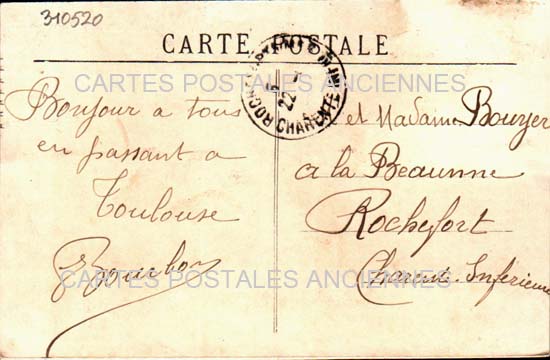 310520
CARTE POSTALE
CARTES POSTALES ANCIENNES
Bonjour a tous
en passant a
Toulouse
et Madame Bouyer
a la Beaunne
Rochefort
Charente Inferieure
CARTES POSTALES ANCIENNES